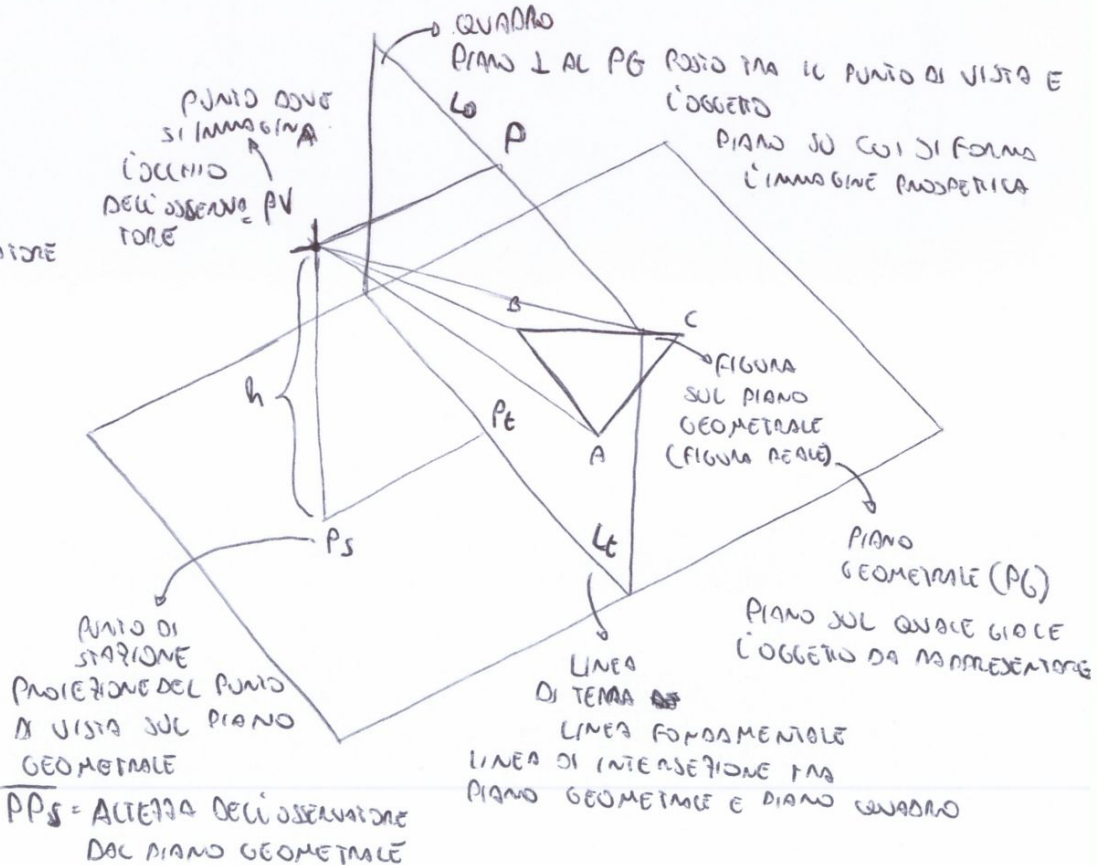 QUADRO
PIANO ⊥ AL PG POSTO TRA IL PUNTO DI VISTA E
L'OGGETTO
PIANO SU CUI SI FORMA
L'IMMAGINE PROSPETTICA
PUNTO DOVE
SI IMMAGINA
L'OCCHIO
DELL'OSSERVA=
TORE
PV
Lo
P
B
C
A
h
Pt
Ps
Lt
FIGURA
SUL PIANO
GEOMETRALE
(FIGURA REALE)
PIANO
GEOMETRALE (PG)
PIANO SUL QUALE GIACE
L'OGGETTO DA RAPPRESENTARE
PUNTO DI
STAZIONE
PROIEZIONE DEL PUNTO
DI VISTA SUL PIANO
GEOMETRALE
LINEA
DI TERRA
LINEA FONDAMENTALE
LINEA DI INTERSEZIONE TRA
PIANO GEOMETRALE E PIANO QUADRO
PPs = ALTEZZA DELL'OSSERVATORE
DAL PIANO GEOMETRALE